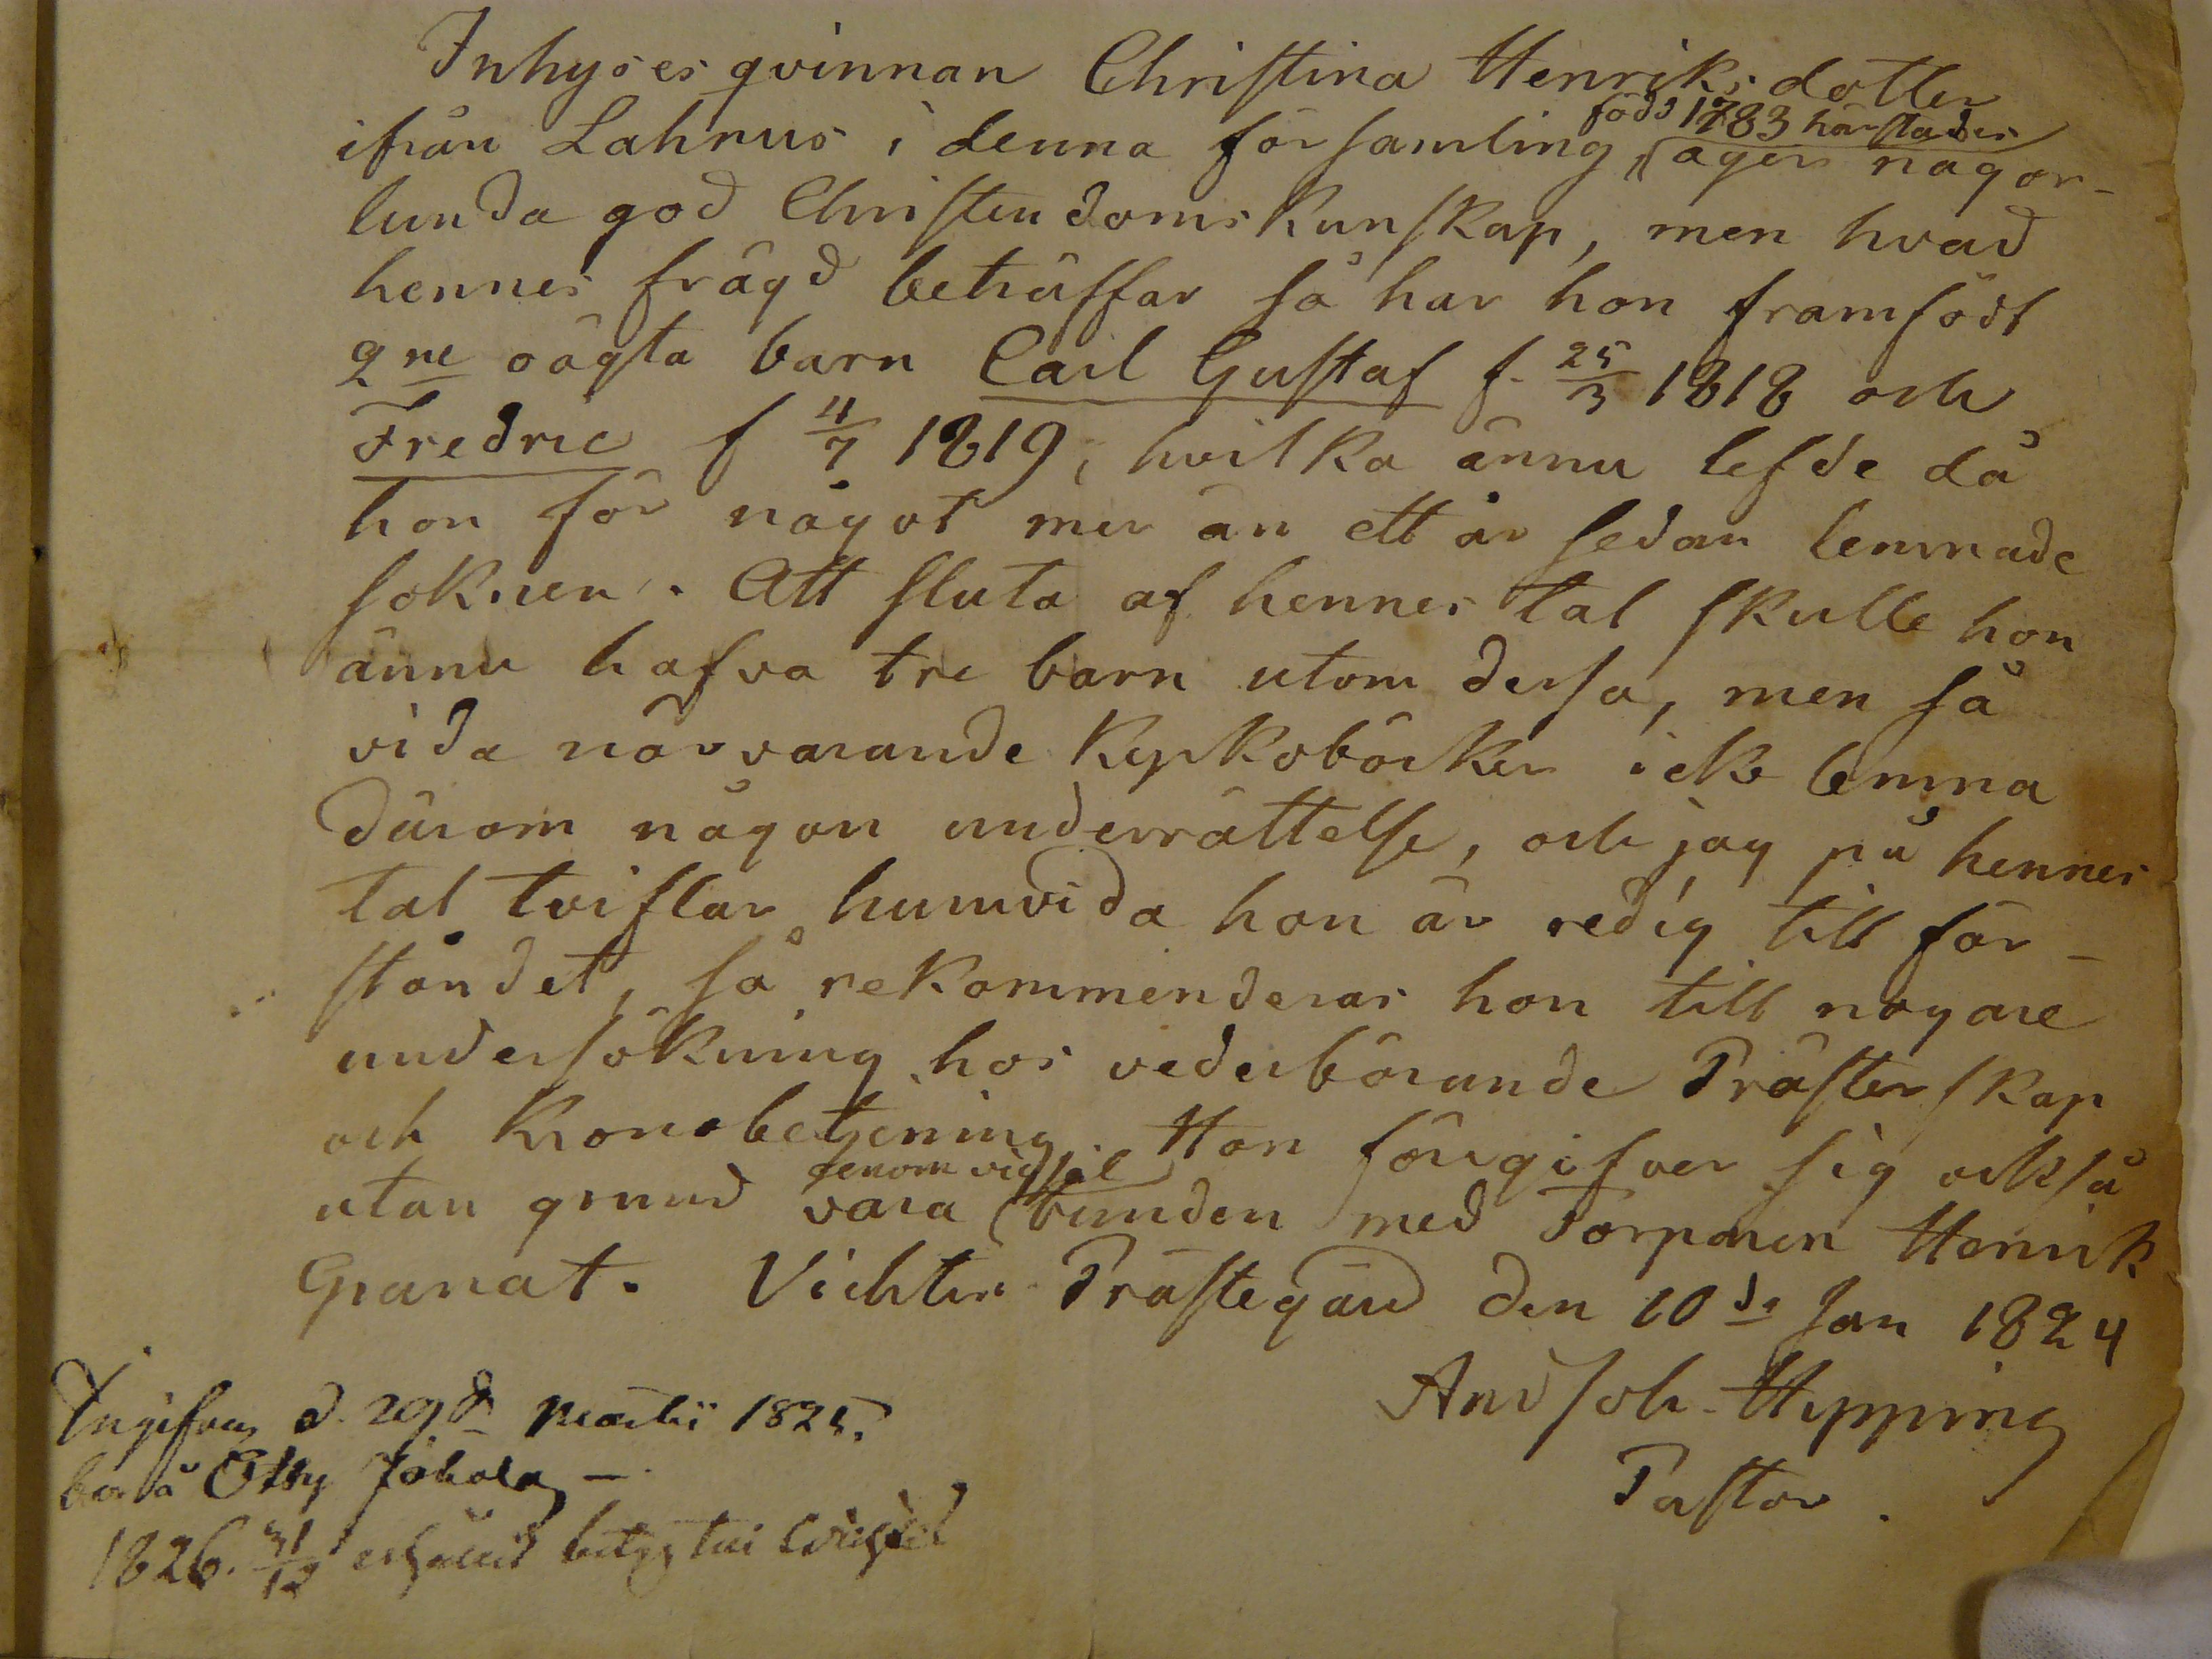 Inhyses qvinnan Christina Henriksdotter
född 1783 härstädes
ifrån Lahnus i denna församling, äger någor-
lunda god Christendomskunskap, men hvad
hennes frägd beträffar så har hon framfödt
2ne oägta barn Carl Gustaf f. 25/3 1818 och
Fredric f 4/7 1819, hvilka ännu lefde då
hon för något mer än ett år sedan lemnade
soknen. Att sluta af hennes tal skulle hon
ännu hafva tre barn utom dessa, men så
vida närvarande Kyrkoböcker icke lemna
därom någon underrättelse, och jag på hennes
tal tviflar huruvida hon är redig till för-
ståndet, så rekommenderas hon till nogare
undersökning hos vederbörande Prästerskap
och Kronobetjening. Hon föregifver sig också
genom vigsel
utan grund vara bunden med Torparen Henrik
Granat. Vichtis Prästegård den 10de Jan 1824
And Joh. Hipping
Pastor.
Ingifven d. 29de Martii 1825.
bor å Oby Jokela —
1826. 31/12 betyg till